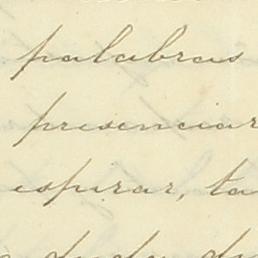 palabras
presenciar
espirar, ta
duda du